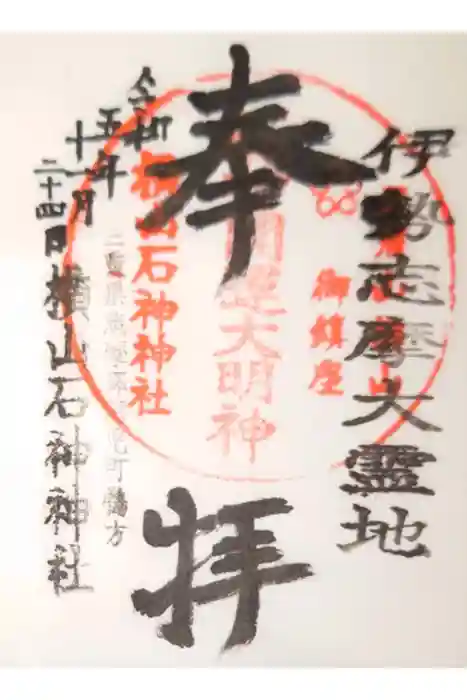 伊勢志摩大霊地
奉拝
御鎮座
大明神
横山石神神社
三重県志摩市阿児町鵜方
令和
五年
十一月
二十四日
横山石神神社